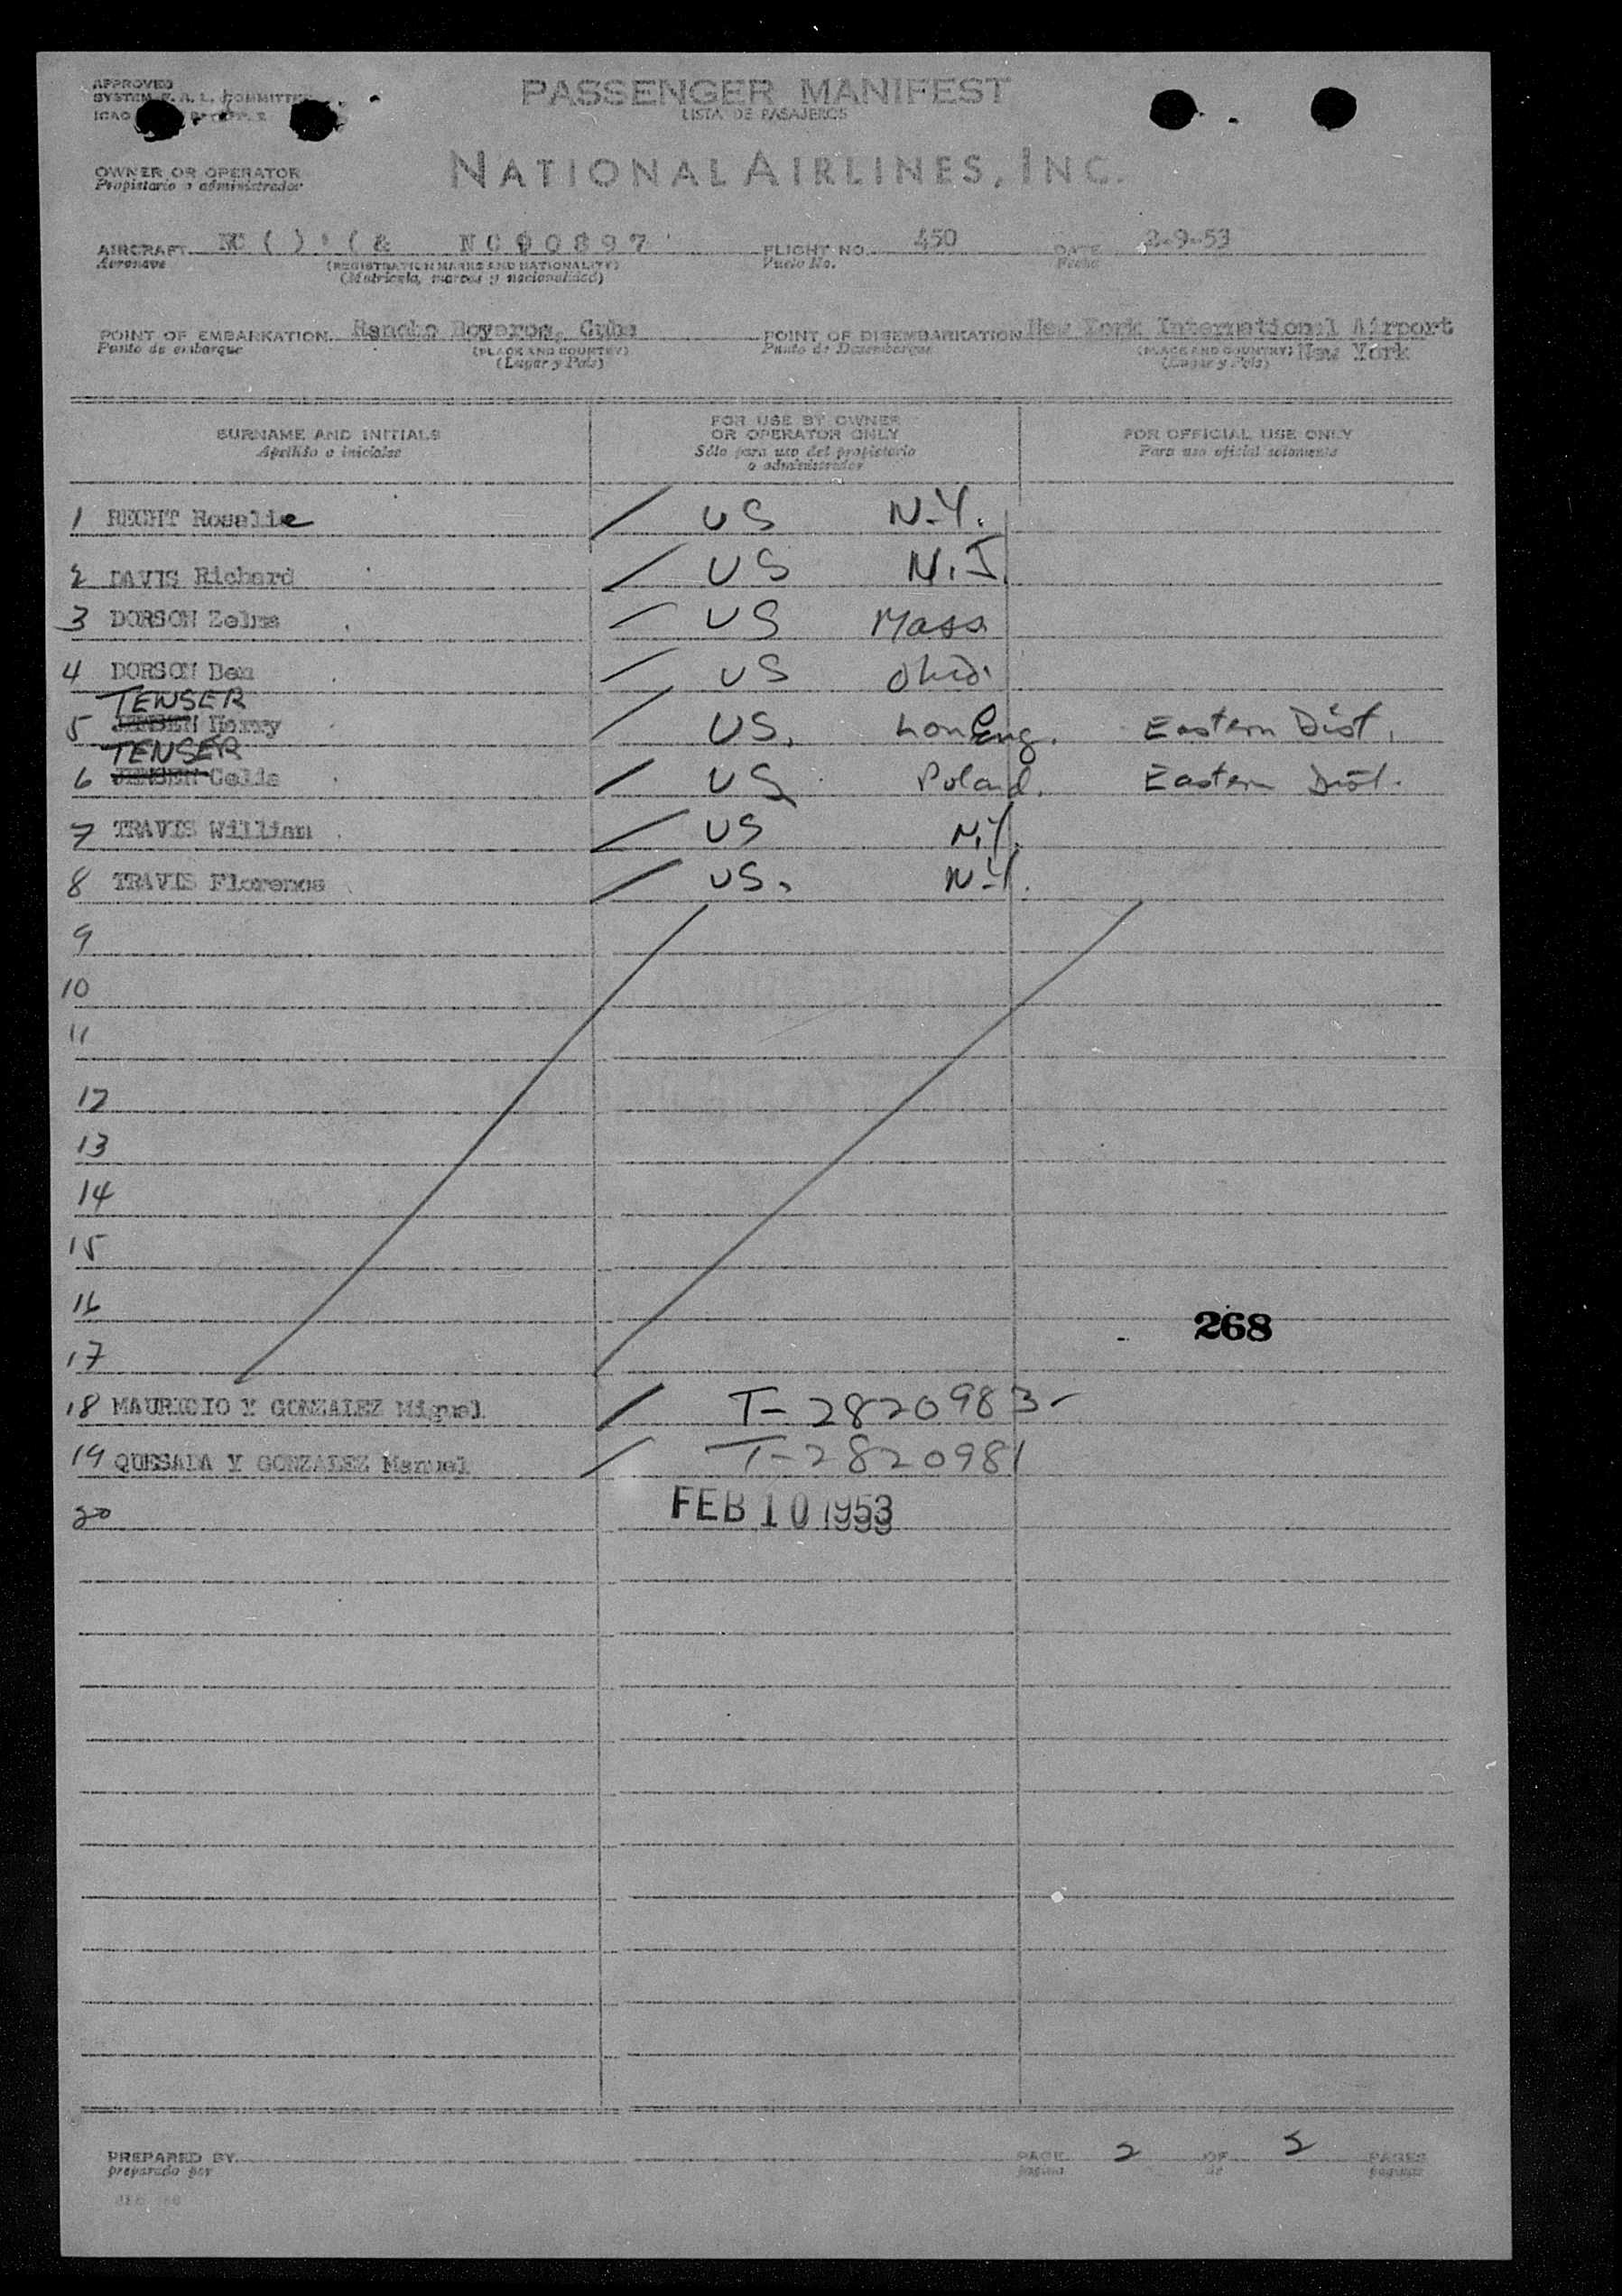 APPROVED
SYSTEM F. A. L. COMMITTEE
ICAO
PASSENGER MANIFEST
LISTA DE PASAJEROS
OWNER OR OPERATOR
Propietario o administrador
NATIONAL AIRLINES, INC.
AIRCRAFT NC ( ) ' ( & NC90897 FLIGHT NO. 450 DATE 2-9-53
Aeronave (REGISTRATION MARKS AND NATIONALITY) Vuelo No. Fecha
(Matricula, marcas y nacionalidad)
POINT OF EMBARKATION Rancho Boyeros, Cuba POINT OF DISEMBARKATION New York International Airport
Punto de embarque (PLACE AND COUNTRY) Punto de Desembarque (PLACE AND COUNTRY) New York
(Lugar y País) (Lugar y País)
SURNAME AND INITIALS FOR USE BY OWNER OR OPERATOR ONLY FOR OFFICIAL USE ONLY
Apellido e iniciales Sólo para uso del propietario o administrador Para uso oficial solamente
1 RECHT Rosalie / US N.Y.
2 DAVIS Richard / US N.J.
3 DORSON Zelma / US Mass
4 DORSON Ben / US Ohio.
TENSER
5 JENSEN Henry / US. Lon Eng. Eastern Dist.
TENSER
6 JENSEN Celia / US Poland. Eastern Dist.
7 TRAVIS William / US N.Y.
8 TRAVIS Florence / US. N.Y.
9
10
11
12
13
14
15
16
268
17
18 MAURICIO Y GONZALEZ Miguel / T-2820983-
19 QUESADA Y GONZALEZ Manuel / T-2820981
20 FEB 10 1953
PREPARED BY PAGE 2 OF 2 PAGES
preparado por pagina de paginas